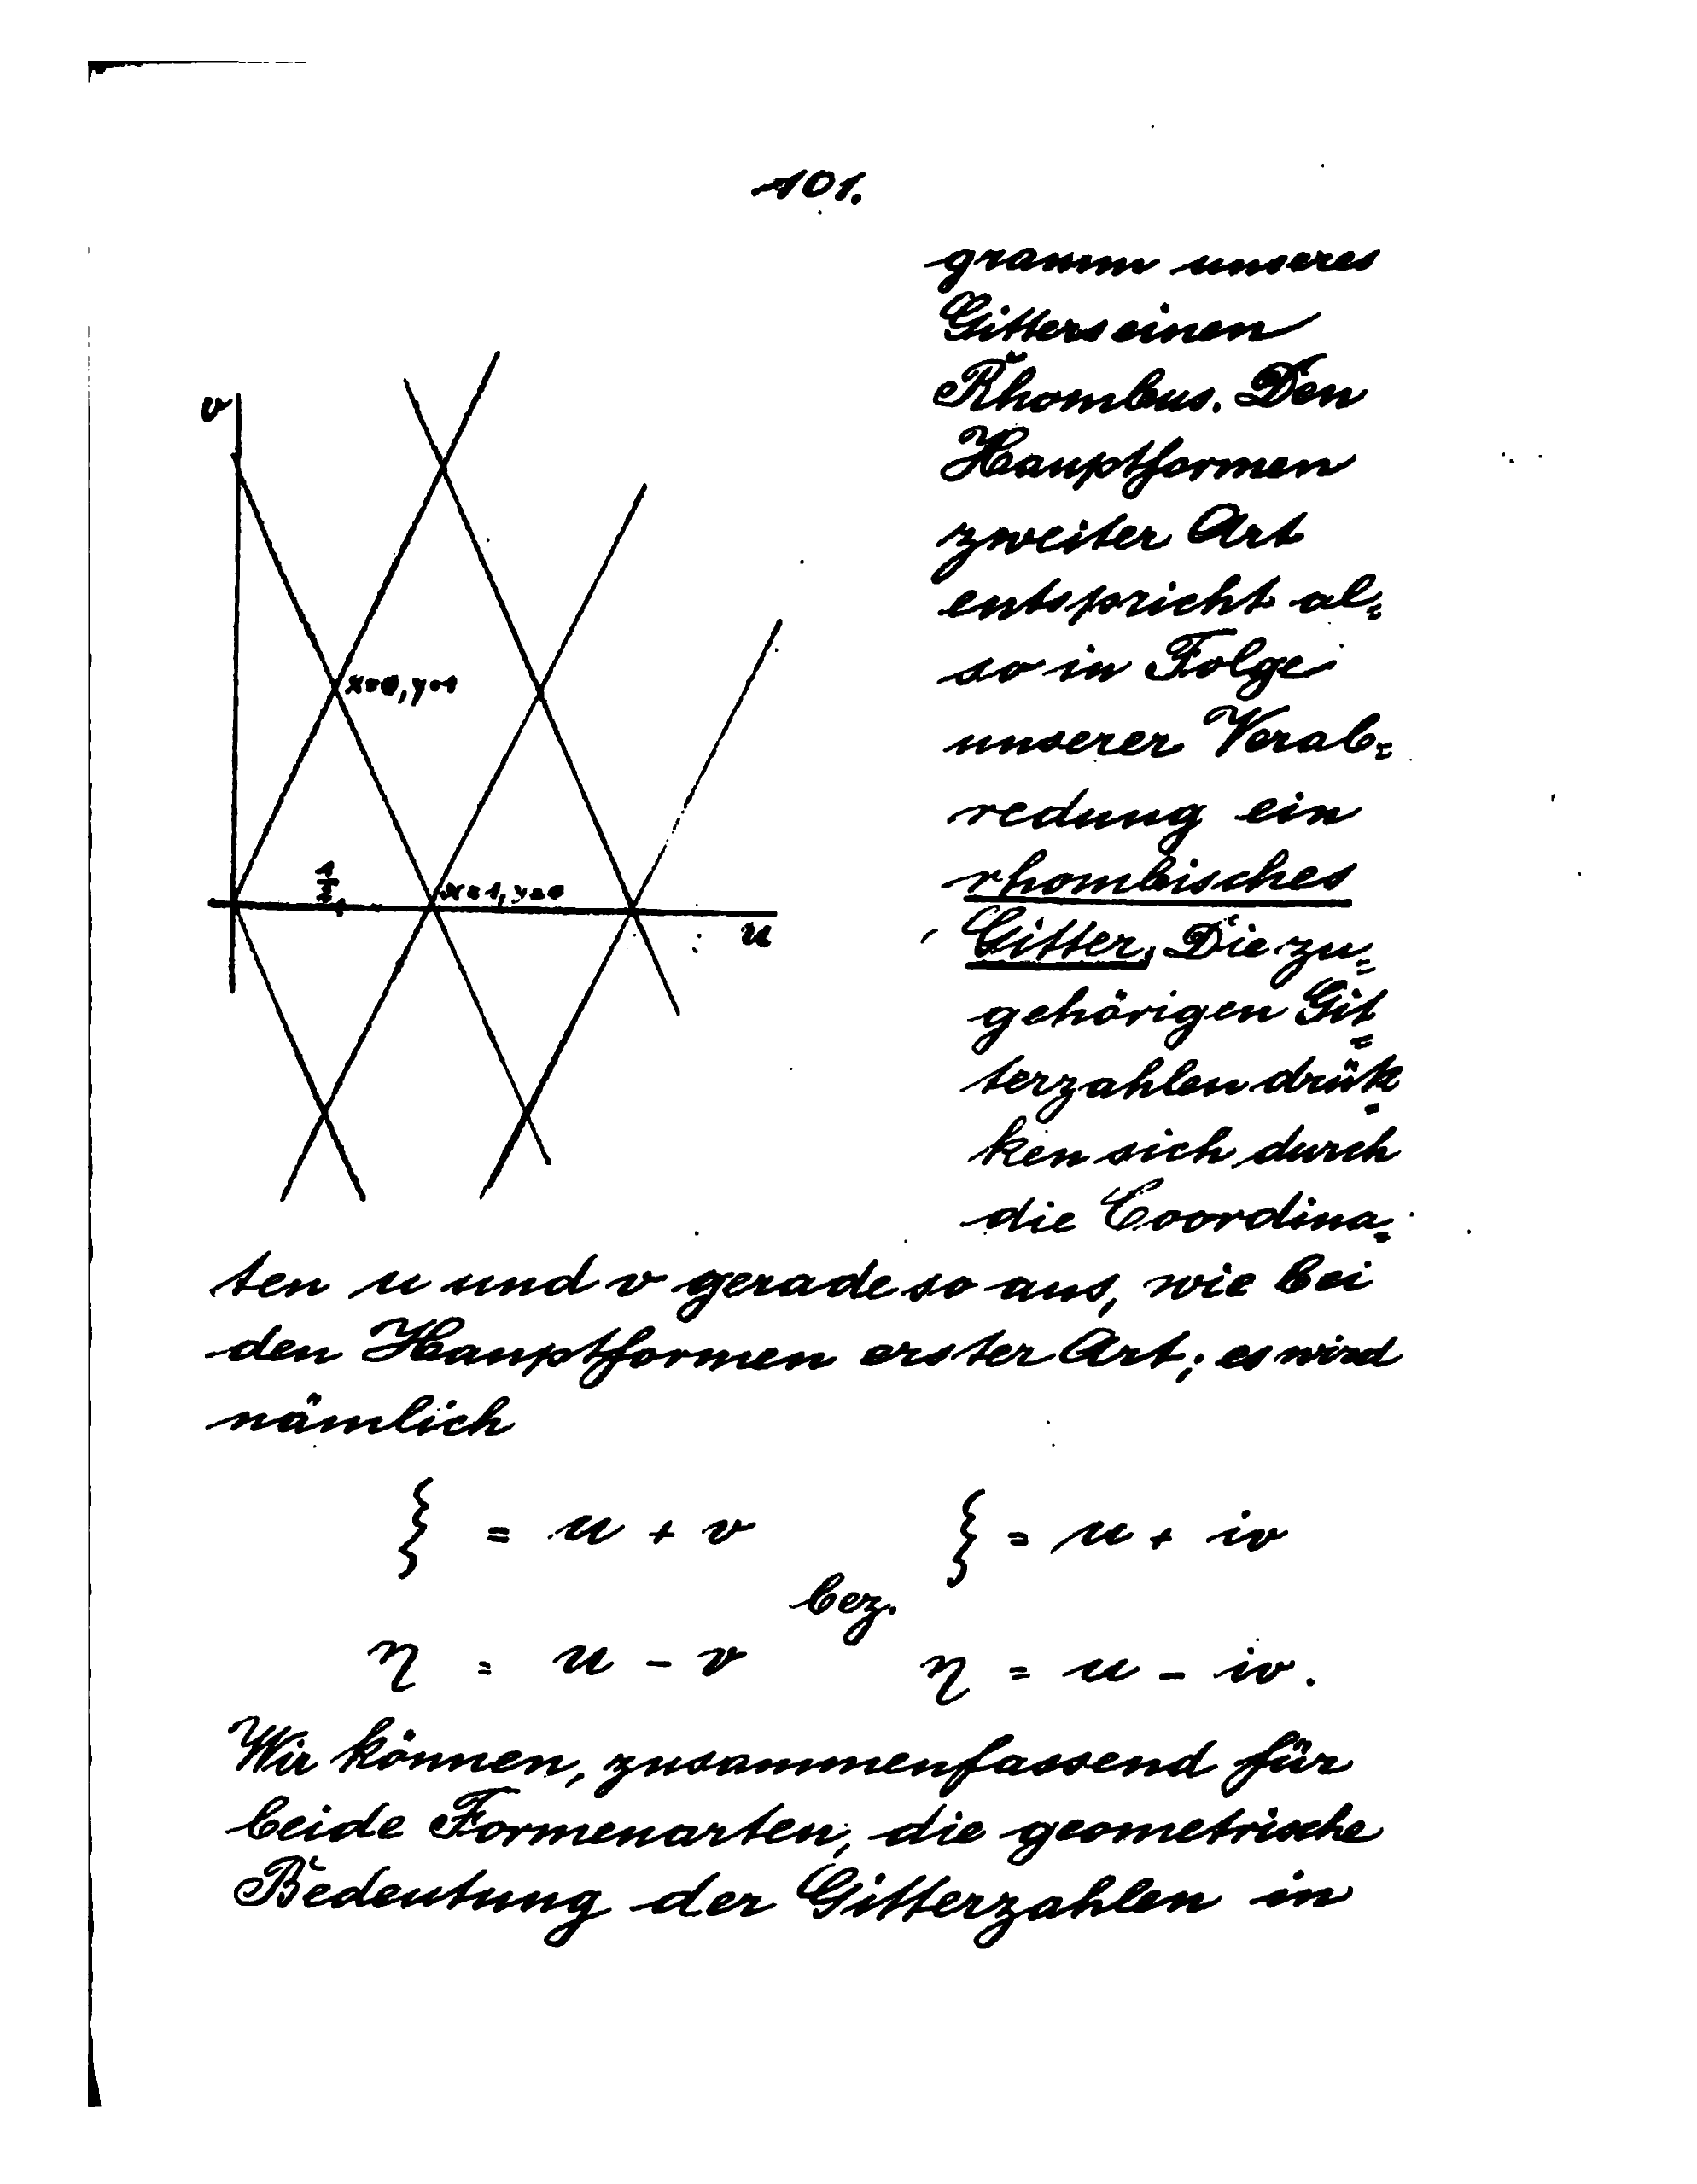 101.
gramm unseres
Gitters einen
Rhombus. Den
Hauptformen
zweiter Art
entspricht al=
so in Folge
unserer Verab=
redung ein
rhombisches
Gitter. Die zu=
gehörigen Git=
terzahlen drük=
ken sich durch
die Coordina=
v
x=0, y=1
1/2
x=1, y=0
u
ten u und v gerade so aus, wie bei
den Hauptformen erster Art; es wird
nämlich
ξ = u + v ξ = u + iv
bez.
η = u - v η = u - iv.
Wir können, zusammenfassend für
beide Formenarten, die geometrische
Bedeutung der Gitterzahlen in